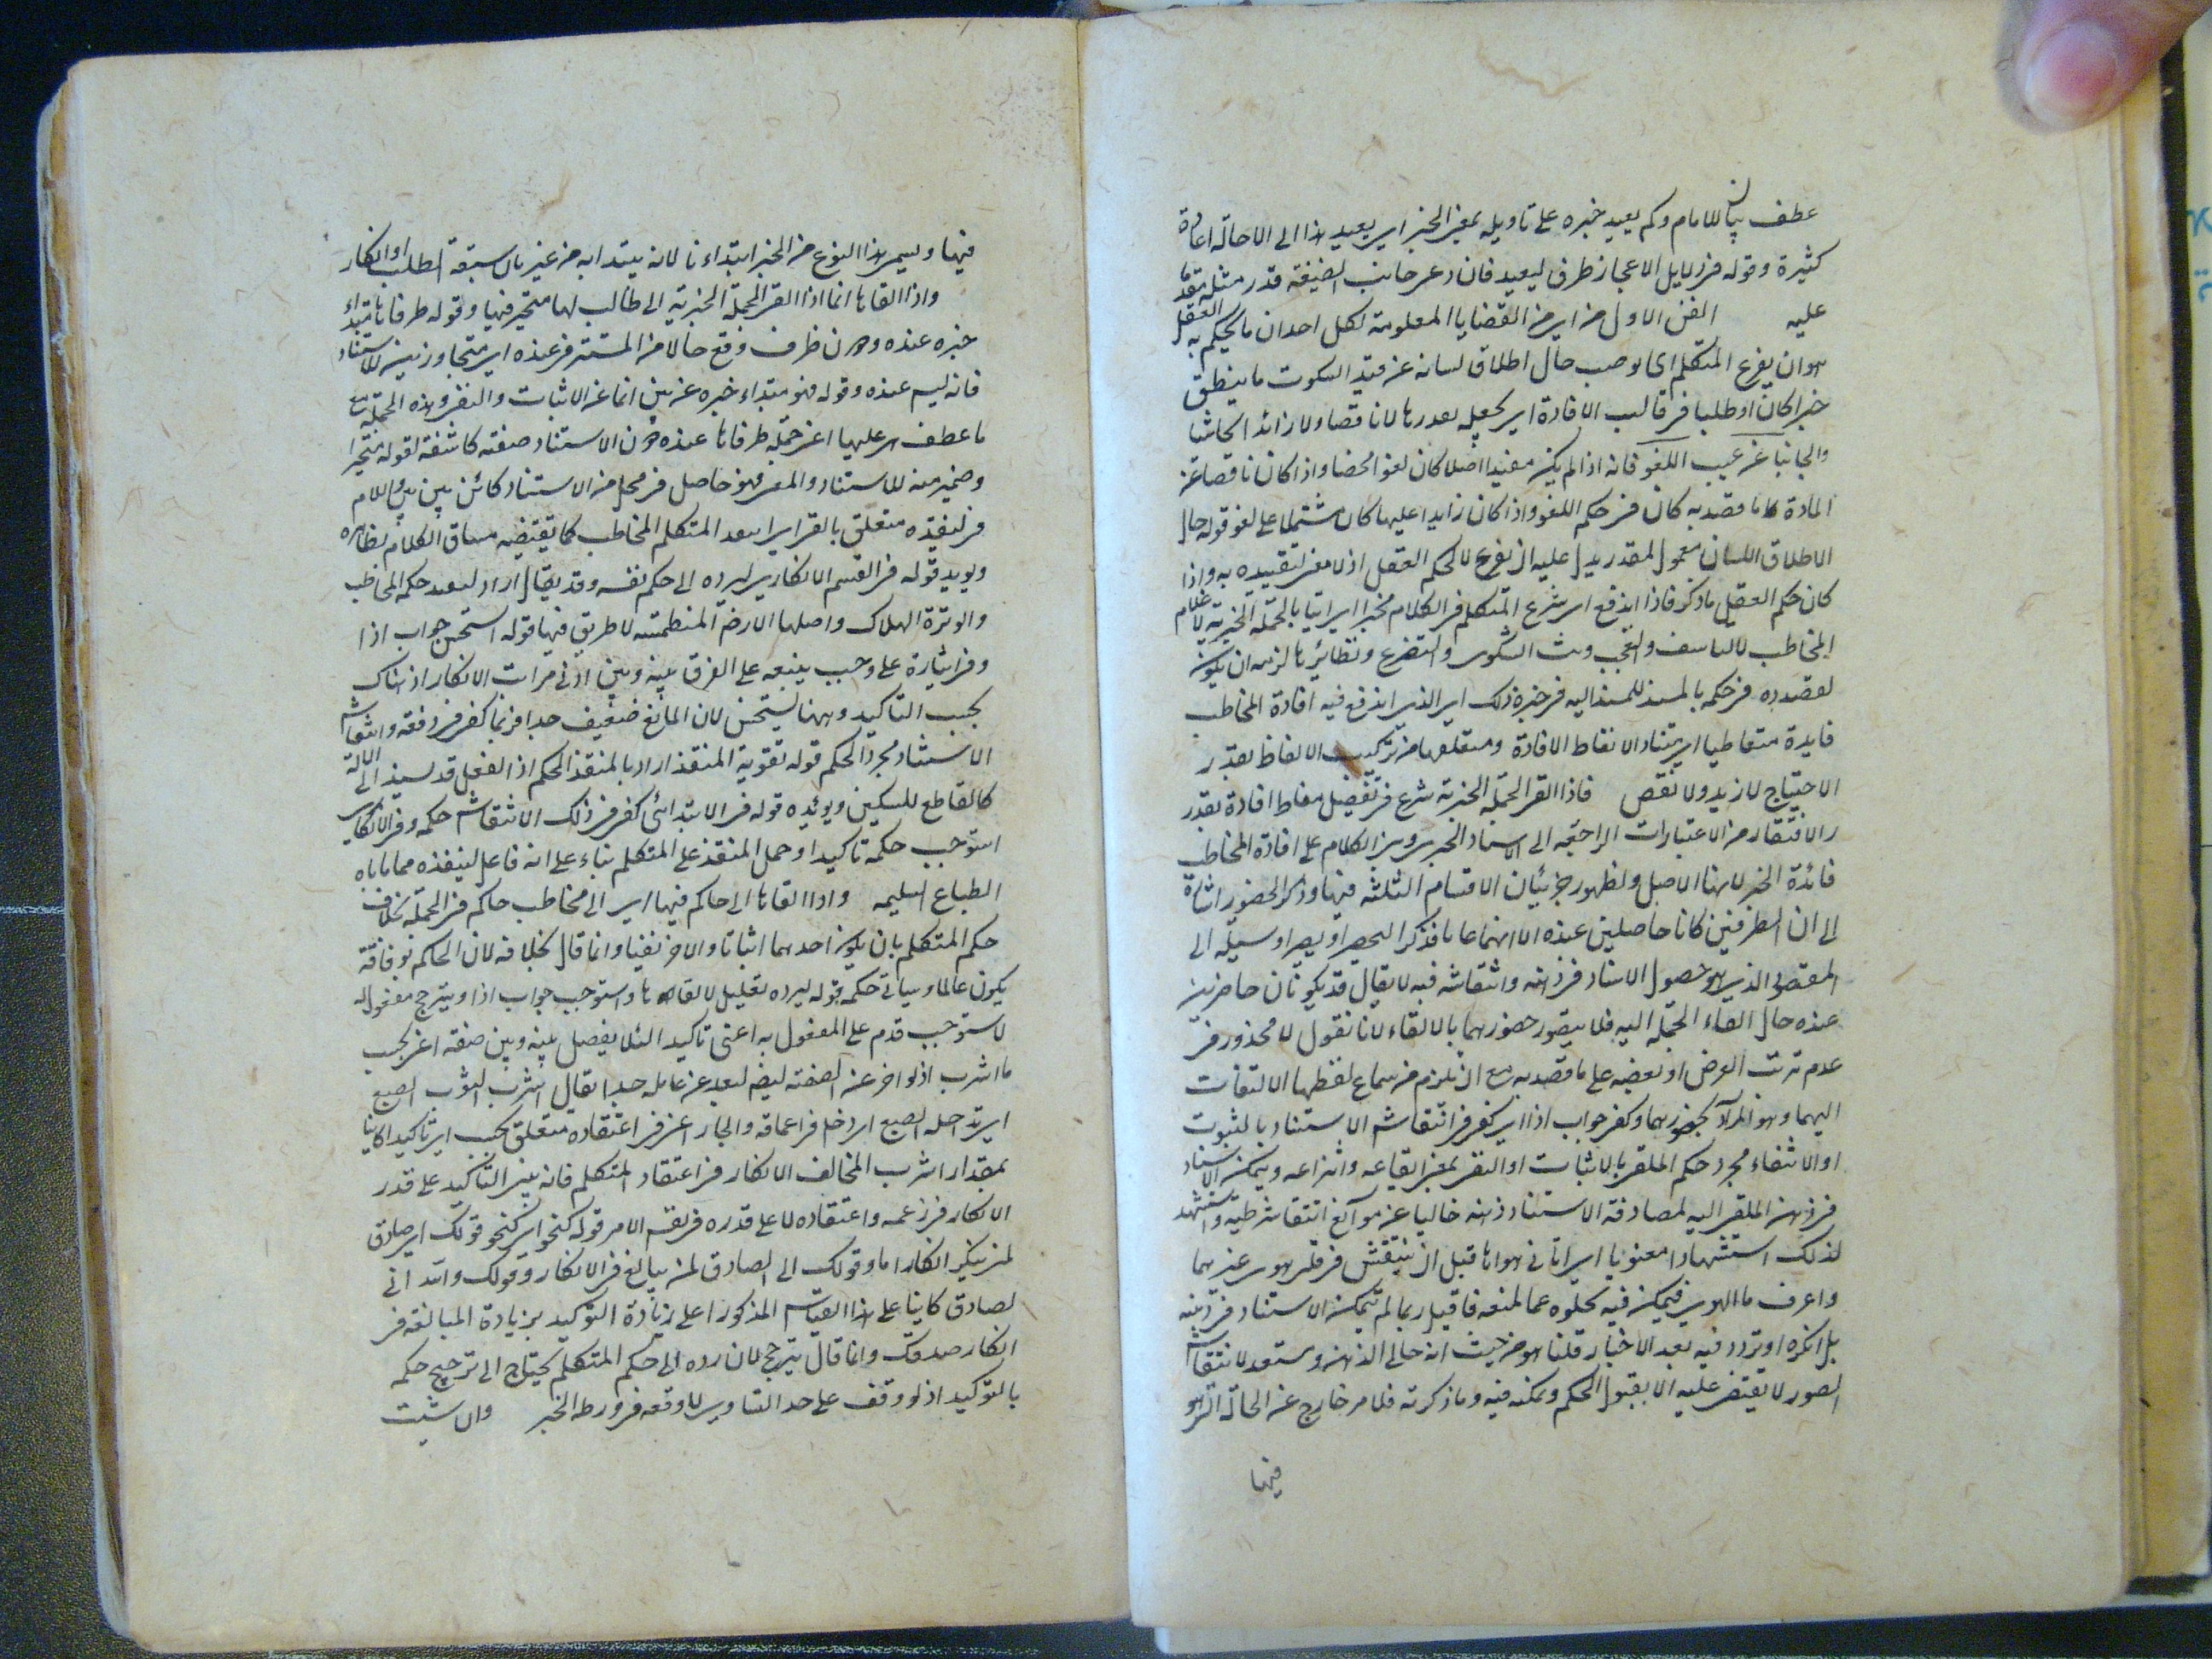 عطف بيان للامام وكم يعيد خبره على تاويله بمعنى الخبر اى يعيد هذا الى الاحالة اعادة
كثيرة وقوله فى دلايل الاعجاز ظرف ليعيد فان دعى جانب الضيفة قدر مثله مقدما
عليه الفن الاول من اى من القضايا المعلومة لكل احد ان ما يحكم به العقل
هو ان يفرغ المتكلم اى يوصب حال اطلاق لسانه عن قيد السكوت ما ينطق
خبرا كان او طلبا فى قالب الافادة اى يجعله بقدرها لا ناقصا ولا زائدا تحاشيا
والجانبا عن عيب اللغو فانه اذا لم يكن مفيدا اصلا كان لغوا محضا واذا كان ناقصا عن
المادة ما قصد به كان فى حكم اللغو واذا كان زايدا عليها كان مشتملا على لغو قوله حال
الاطلاق اللسان معمول لمقدر يدل عليه ان يفرغ لا لحكم العقل اذ لا معنى لتقييده به واذا
كان حكم العقل ما ذكر فاذا اندفع اى شرع المتكلم فى الكلام مخبرا اى اتيا بالجملة الخبرية لاعلام
المخاطب لا للتاسف والتعجب وبث الشكوى والتضرع ونظائرها لزم ان يكون
لقصده فى حكمه بالمسند للمسند اليه فى خبره ذلك اى الذى اندفع فيه افادة المخاطب
فايدة متعاطيا اى متناولا نقاط الافادة ومتعلقها من تركيب الالفاظ بقدر
الاحتياج لا ازيد ولا نقص فاذا القى الجملة الخبرية شرع فى تفصيل مناط افادة بقدر
الافتقار من الاعتبارات الراجعة الى الاسناد الخبرى وبنى الكلام على افادة المخاطب
فائدة الخبر لانها الاصل ولظهور جريان الاقسام الثلثة فيها وذكر الحضور اشارة
الى ان الطرفين كانا حاصلين عنده الا انهما غابا فذكرا ليحضرا ويصيرا وسيلة الى
المقصود الذى هو حصول الاسناد فى ذهنه وانتقاشه فيه لا يقال قد يكونان حاضرين
عنده حال القاء الجملة اليه فلا يتصور حضورهما بالالقاء لانا نقول لا محذور فى
عدم ترتب الغرض او بعضه على ما قصد به مع انه يلزم من سماع لفظهما الالتفات
اليهما وهو المراد بحضورهما وكفى جواب اذا اى كفى فى انتقاش الاستناد بالثبوت
او الانتفاء مجرد حكم الملقى بالاثبات او النفى بمعنى ايقاعه وانتزاعه ويتمكن الاسناد
فى ذهن الملقى اليه لمصادفة الاستناد ذهنه خاليا عن موانع انتقاش طيه واستشهد
لذلك استشهادا معنويا اى اتانى هواها قبل ان ينتقش فى قلبى هوى غيرهما
واعرف ما الهوى فيمكن فيه لخلوه عما لمنعه فما قيل ربما لم يتمكن الاستناد فى ذهنه
بل انكره او تردد فيه بعد الاخبار قلنا هو من حيث انه خالى الذهن ومستعد لانتقاش
الصور لا يقتضى عليه الا بقبول الحكم وتمكنه فيه وما ذكرته فلامر خارج عن الحالة التى هو
فيها
فيها ويسمى هذا النوع من الخبر ابتدائيا لانه يبتدا به من غير ان سبقه الطلب او انكار
واذا القاها انما اذا القى الجملة الخبرية الى طالب لها متحير فيها وقوله طرفاها مبتداء
خبره عنده ودون ظرف وقع حالا من المستتر فى عنده اى متجاوزين للاستناد
فانه ليس عنده وقوله فهو مبتداء خبره عن بين انما عن الاثبات والنفى وهذه الجملة مع
ما عطف هى عليها اعنى جملة طرفاها عنده دون الاستناد صفة كاشفة لقوله متحيرا
وضمير منه للاستناد والمعنى فهو حاصل فى محل من الاستناد كائن بين بين واللام
فى لينقذه متعلق بالقى اى لينقذ المتكلم المخاطب كما يقتضيه مساق الكلام بظاهره
ويويد قوله فى القسم الانكارى ليرده الى حكم نفسه وقد يقال اراد لينقذ حكمه المخاطب
والورطة الهلاك واصلها الارض المنطمئنة لا طريق فيها قوله استحسن جواب اذا
وفى ايثاره على وجب ينبه على الفرق بينه وبين ادنى مراتب الانكار اذ هناك
يجب التاكيد وههنا يستحسن لان المانع ضعيف جدا فربما كفى فى دفعه وانتقاش
الاستناد مجرد الحكم قوله تقوية المنقذ اراد بالمنقذ الحكم اذ الفعل قد يسند الى الآلة
كالقاطع للسكين ويؤيده قوله فى الابتدائى كفى فى ذلك الانتقاش حكمه وفى الانكارى
استوجب حكمه تاكيدا وحمل المنقذ على المتكلم بناء على انه فاعل لينقذه مما ياباه
الطباع السليمه واذا القاها الى حاكم فيها اى الى مخاطب حاكم فى الجملة بخلاف
حكم المتكلم بان يكون احدهما اثباتا والاخر نفيا وانما قال بخلافه لان الحاكم بوفاقه
يكون عالما وسياتى حكمه قوله ليرده تعليل لالقاها واستوجب جواب اذا وبترجح مفعول له
لاستوجب قدم على المفعول به اعنى تاكيدا لئلا يفصل بينه وبين صفته اعنى بحسب
ما اشرب اذ لو اخر عن الصفة ايضا لبعد عن عامله جدا يقال اشرب الثوب الصبغ
اى تداخله الصبغ اى دخل فى اعماقه والجار اعنى فى اعتقاده متعلق بحسب اى تاكيدا كائنا
بمقدار اشرب المخالف الانكار فى اعتقاد المتكلم فانه يبنى التاكيد على قدر
الانكار فى زعمه واعتقاده لا على قدره فى نفس الامر قوله كنحو اى كنحو قولك انى صادق
لمن ينكر انكارا ما وقولك انى لصادق لمن يبالغ فى الانكار وقولك والله انى
لصادق كاينا على هذا القياس المذكور اعلى زيادة التوكيد بزيادة المبالغة فى
انكار صدقك وانما قال بترجح لان رده الى حكم المتكلم يحتاج الى ترجيح حكمه
بالتوكيد اذ لو وقف على حد التساوى لاوقعه فى ورطة الخبر وان شئت